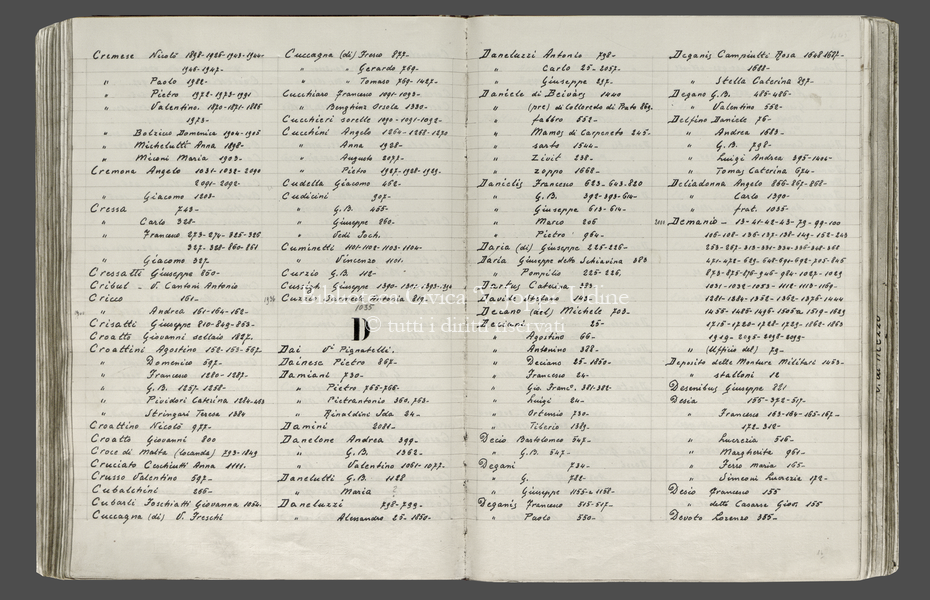 Cremese Nicolò 1898-1926-1943-1944-
1946-1947-
" Paolo 1982-
" Pietro 1972-1973-1991
" Valentino. 1870-1871-1886
1973-
" Bolzico Domenica 1904-1905
" Michelutti Anna 1898-
" Misoni Maria 1903-
Cremona Angelo 1031-1032-2090
2091-2092-
" Giacomo 1203-
Cressa 743-
" Carlo 328-
" Francesco 273-274-325-326
327-328-860-861
" Giacomo 327-
Cressatti Giuseppe 850-
Cribul - V. Cantoni Antonio
Cricco 161-
" Andrea 161-164-162-
Crisatti Giuseppe 810-849-853-
Croatto Giovanni sellaio 1827-
Croattini Agostino 152-153-557
" Domenico 597-
" Francesco 1280-1287-
" G.B. 1257-1258-
" Pividori Caterina
" Stringari Teresa 1384
Croattino Nicolò 977-
Croatto Giovanni 800
Croce di Malta (locanda) 793-1849
Cruciato Cecchiutti Anna 1111-
Crusso Valentino 597-
Cubalchini 255-
Cubarli Foschiatti Giovanna 1054-
Cuccagna (di) V. Freschi
Cuccagna (di) Fresco 877-
" " Gerardo 769-
" " Tomaso 769-1427-
Cucchiaro Francesco 1091-1092-
" Benghina Orsola 1330-
Cucchieri sorelle 1090-1091-1092-
Cucchini Angelo 1264-1268-1270
" Anna 1928-
" Augusto 2077-
" Pietro 1927-1928-1929-
Cudella Giacomo 462-
Cudicini 907-
" G.B. 455-
" Giuseppe 862-
" Vedi Joch.
Cuminetti 1101-1102-1103-1104-
" Vincenzo 1101.
Curzio G.B. 112-
Cussigh Giuseppe 1390-1391-1393-390
1035
D
Dai V. Pignatelli.
Dainese Pietro 865-
Damiani 730-
" Pietro 765-766-
" Pietrantonio 360.753-
" Rinaldini Ida 24-
Damini 2081-
Danelone Andrea 399-
" G.B. 1362-
" Valentino 1051-1077-
Danelutti G.B. 1128
" Maria
Daneluzzi 798-799-
" Alessandro 25-1850-
Daneluzzi Antonio 798-
" Carlo 25-2057-
" Giuseppe 257-
Daniele di Beivârs 1440
" (pre) di Colloredo di Prato 869.
" fabbro 552-
" Mamos di Carpeneto 245-
" sarto 1544-
" Zivit 238-
" zoppo 1668-
Danielis Francesco 623-643.820
" G.B. 392-393-614-
" Giuseppe 613-614-
" Marco 206
" Pietro 964-
Daria (di) Giuseppe 225-226-
Daria Giuseppe detto Schiavina 383
" Pompilio 225-226.
Dartus Caterina 393-
Decano (del) Michele 703-
25-
" Agostino 66-
" Antonino 388-
" Deciano 25-1850-
" Francesco 24-
" Gio. Franc. 381-382-
" Luigi 24-
" Ortensio 730-
" Tiberio 1389-
Decio Bartolomeo 547-
" G.B. 547-
Degani 734-
" G. 782-
" Giuseppe 1155-1158-
Deganis Francesco 515-517-
" Paolo 550-
Deganis Campiutti Rosa 1648-1657-
1683-
" Stella Caterina 897-
Degano G.B. 485-486-
" Valentino 552-
Delfino Daniele 76-
" Andrea 1683-
" G.B. 798-
" Luigi Andrea 395-1406-
" Tomas Caterina 674-
Deliadonna Angelo 866-867-868-
" Carlo 1390-
" frat. 1035-
Demanio - 13-41-42-43-79-99-100
106-108-136-137-138-149-162-243
263-267-313-331-334-336-348-362
471-472-629-648-691-692-705-845
873-875-876-946-984-1027-1029
1031-1032-1053-1112-1113-1169-
1281-1284-1352-1362-1375-1444
1455-1485-1495-1505a-1519-1689
1715-1720-1728-1729-1862-1863
1919-2035-2098-2099-
" (Ufficio del) 79-
Deposito delle Monture Militari 1453-
" stalloni 12
Desenibus Giuseppe 821
Desia 155-372-517-
" Francesco 163-164-165-167-
172-312-
" Lucrezia 515-
" Margherita 961-
" Ferro Maria 165-
" Simeoni Lucrezia 172-
Desio Francesco 155
" detto Casarsa Giov. 155
Devoto Lorenzo 385-
Biblioteca Civica V. Joppi, Udine
© tutti i diritti riservati